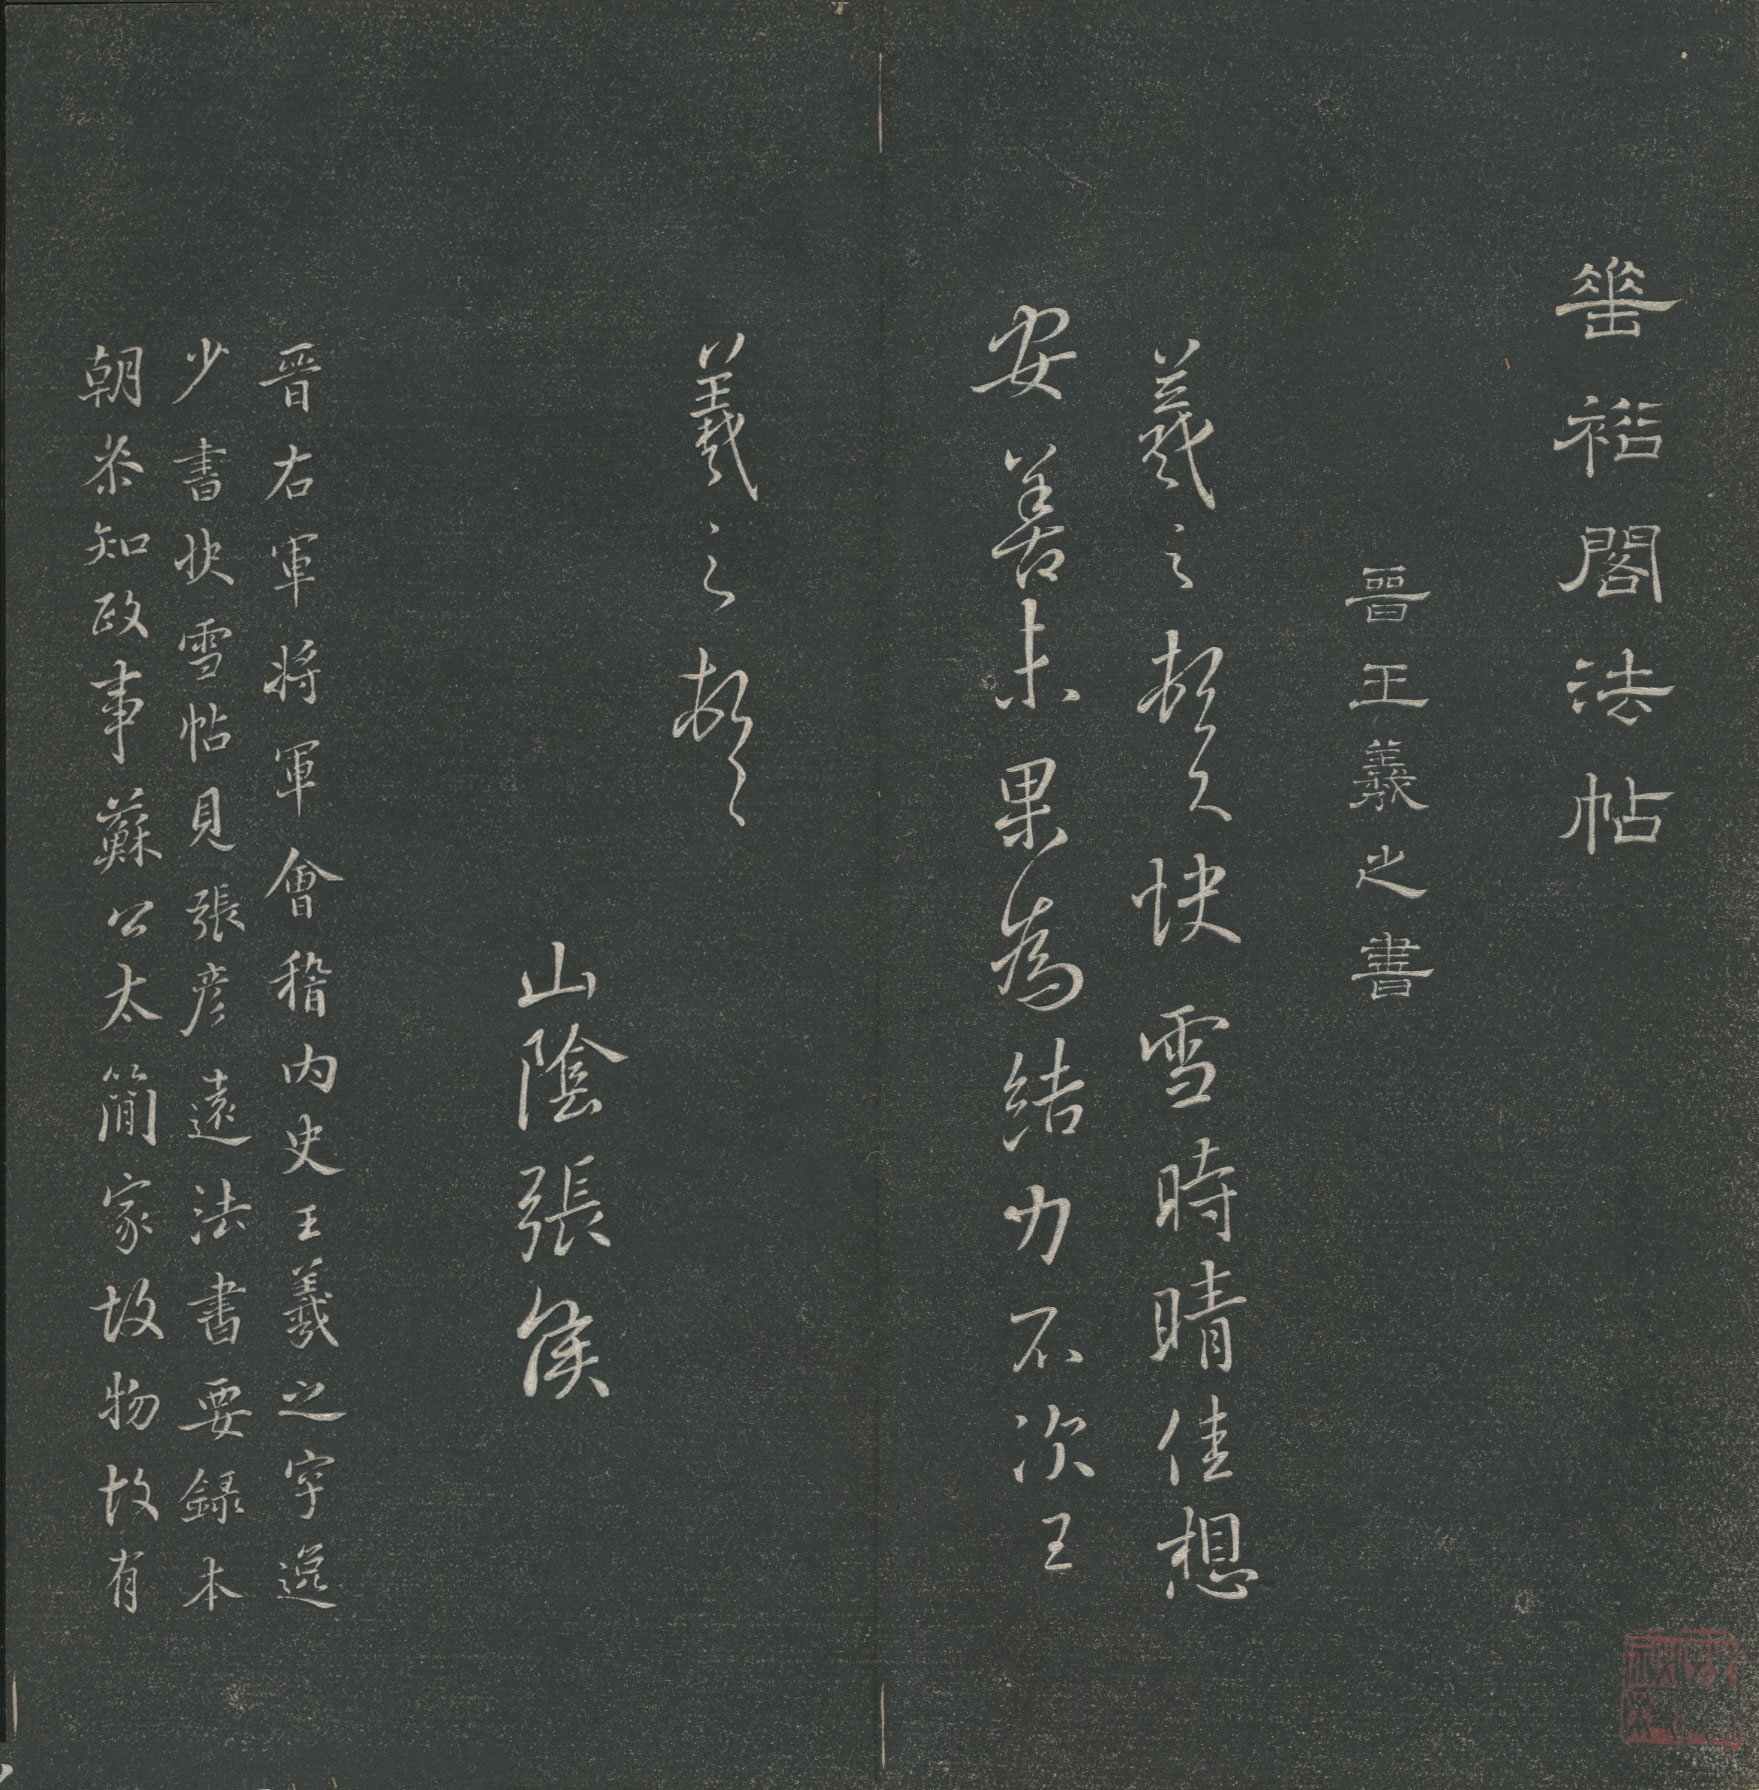 垂裕閣法帖
晉王羲之書
羲之頓首快雪時晴佳想
安善未果為結力不次王
羲之頓首
山陰張侯
晉右軍將軍會稽内史王羲之字逸
少書快雪帖見張彥遠法書要録本
朝叅知政事蘇公太簡家故物故有